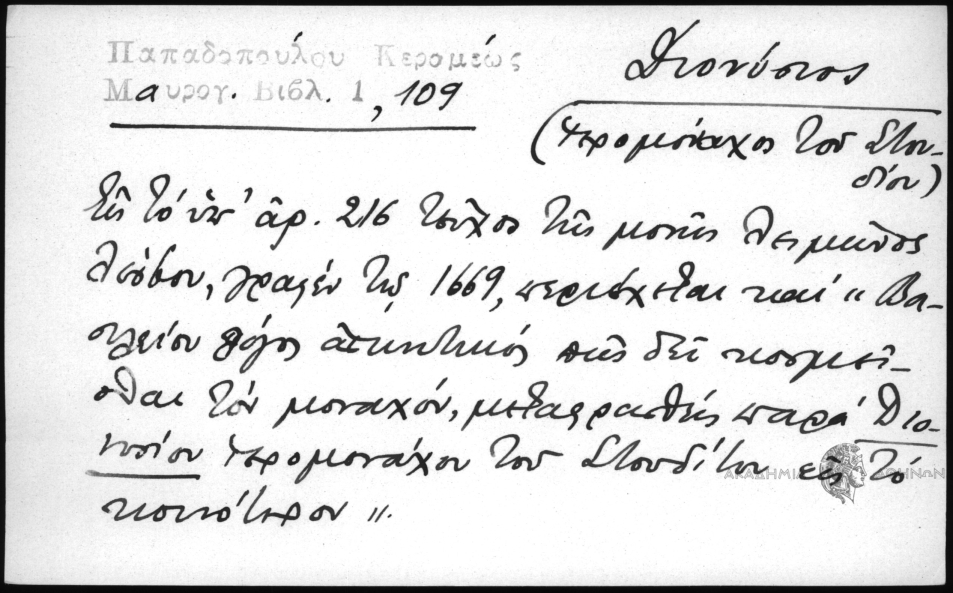 Παπαδοπούλου Κεραμέως
Μαυρογ. Βιβλ. 1, 109
Διονύσιος
(ἱερομόναχος τοῦ Στου-
δίου)
Εἰς τό ὑπ' ἀρ. 216 τεῦχος τῆς μονῆς Λειμῶνος
Λέσβου, γραφέν τῷ 1669, περιέχεται καί "Βα-
σιλείου λόγος ἀσκητικός πῶς δεῖ κοσμεῖ-
σθαι τόν μοναχόν, μεταφρασθείς παρά Διο-
νυσίου ἱερομονάχου τοῦ Στουδίτου εἰς τό
κοινότερον".
ΑΚΑΔΗΜΙΑ ΑΘΗΝΩΝ